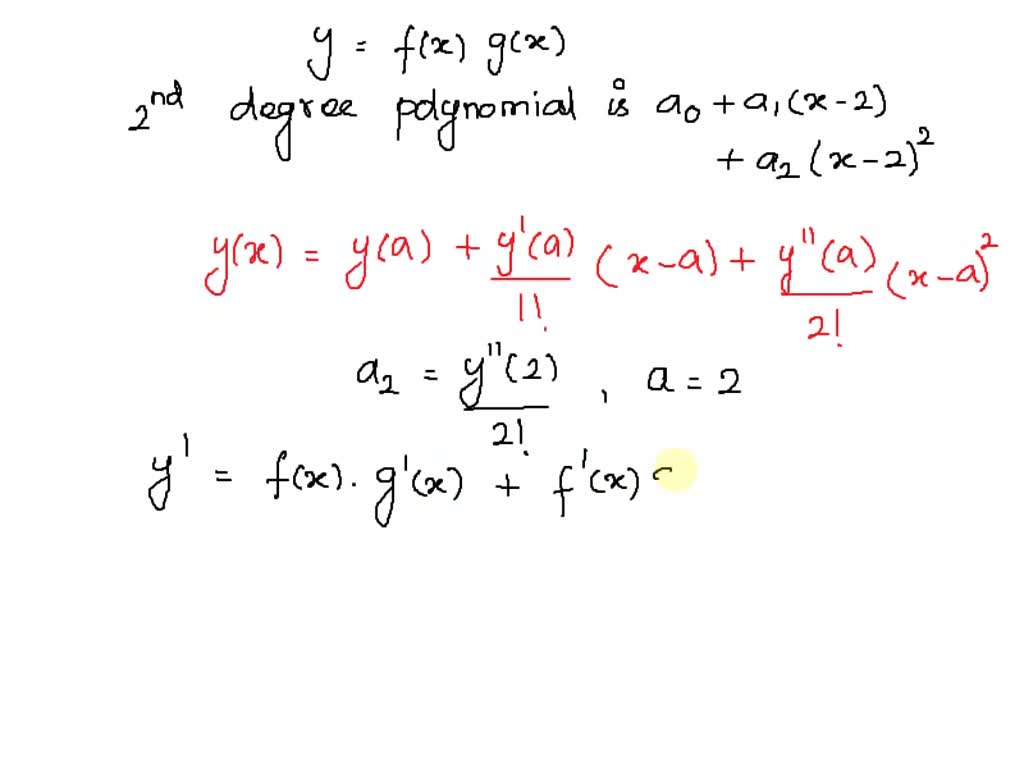 y = f(x) g(x)
2nd degree polynomial is a₀ + a₁(x-2)
+ a₂(x-2)²
y(x) = y(a) + y'(a)/1! (x-a) + y''(a)/2! (x-a)²
a₂ = y''(2)/2! , a = 2
y' = f(x). g'(x) + f'(x)